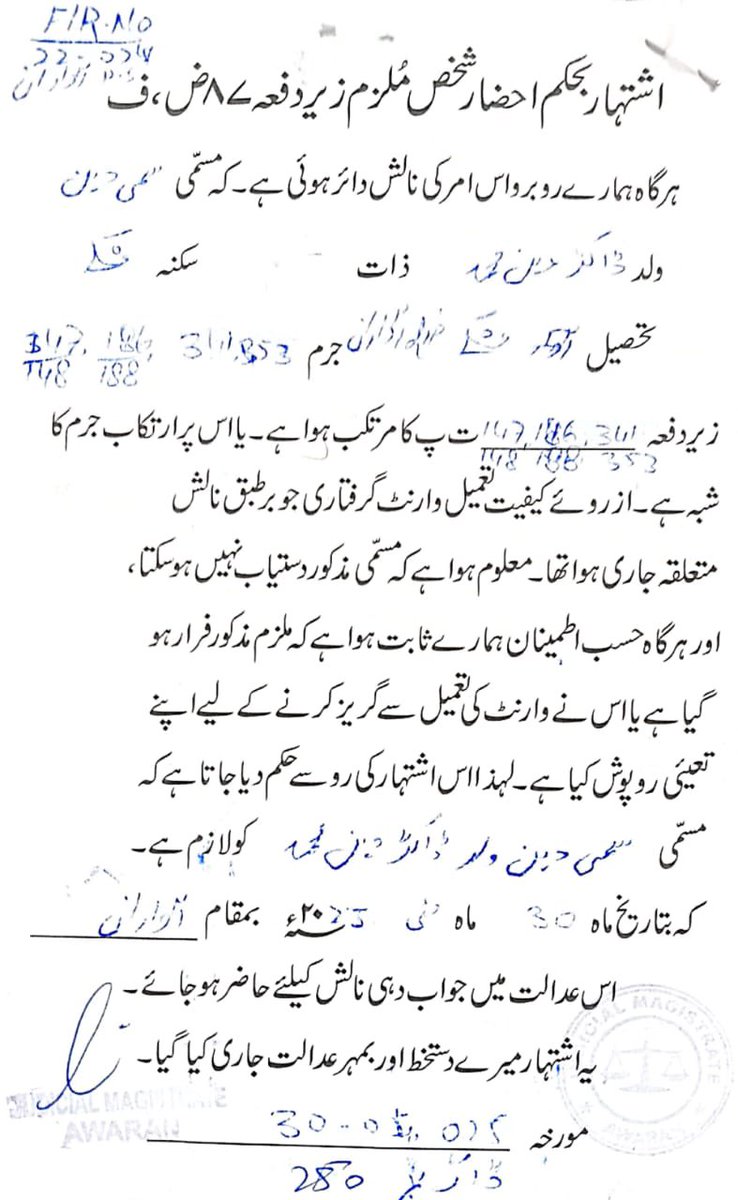 FIR-NO
اشتہار بحکم احضار شخص مُلزم زیر دفعہ ۸۷ ض،ف
ہرگاہ ہمارے روبرو اس امر کی نالش دائر ہوئی ہے۔ کہ مسمّی سمی دین
ولد ڈاکٹر دین محمد ذات سکنہ
تحصیل جرم 341,353 186, 347,
188 148
زیر دفعہ 147, 186, 341 ت پ کا مرتکب ہوا ہے۔ یا اس پر ارتکاب جرم کا
148 188 353
شبہ ہے۔ از روئے کیفیت تعمیل وارنٹ گرفتاری جو برطبق نالش
متعلقہ جاری ہوا تھا۔ معلوم ہوا ہے کہ مسمّی مذکور دستیاب نہیں ہوسکتا،
اور ہرگاہ حسب اطمینان ہمارے ثابت ہوا ہے کہ ملزم مذکور فرار ہو
گیا ہے یا اس نے وارنٹ کی تعمیل سے گریز کرنے کے لیے اپنے
تعیئی روپوش کیا ہے۔ لہذا اس اشتہار کی رو سے حکم دیا جاتا ہے کہ
مسمّی سمی دین ولد ڈاکٹر دین محمد کو لازم ہے۔
کہ بتاریخ ماہ 30 ماہ مئی ۲۰25ء بمقام آواران
اس عدالت میں جواب دہی نالش کیلئے حاضر ہوجائے۔
یہ اشتہار میرے دستخط اور بمہر عدالت جاری کیا گیا۔
JUDICIAL MAGISTRATE
AWARAN
JUDICIAL MAGISTRATE
AWARAN
مورخہ 30-05-025
280